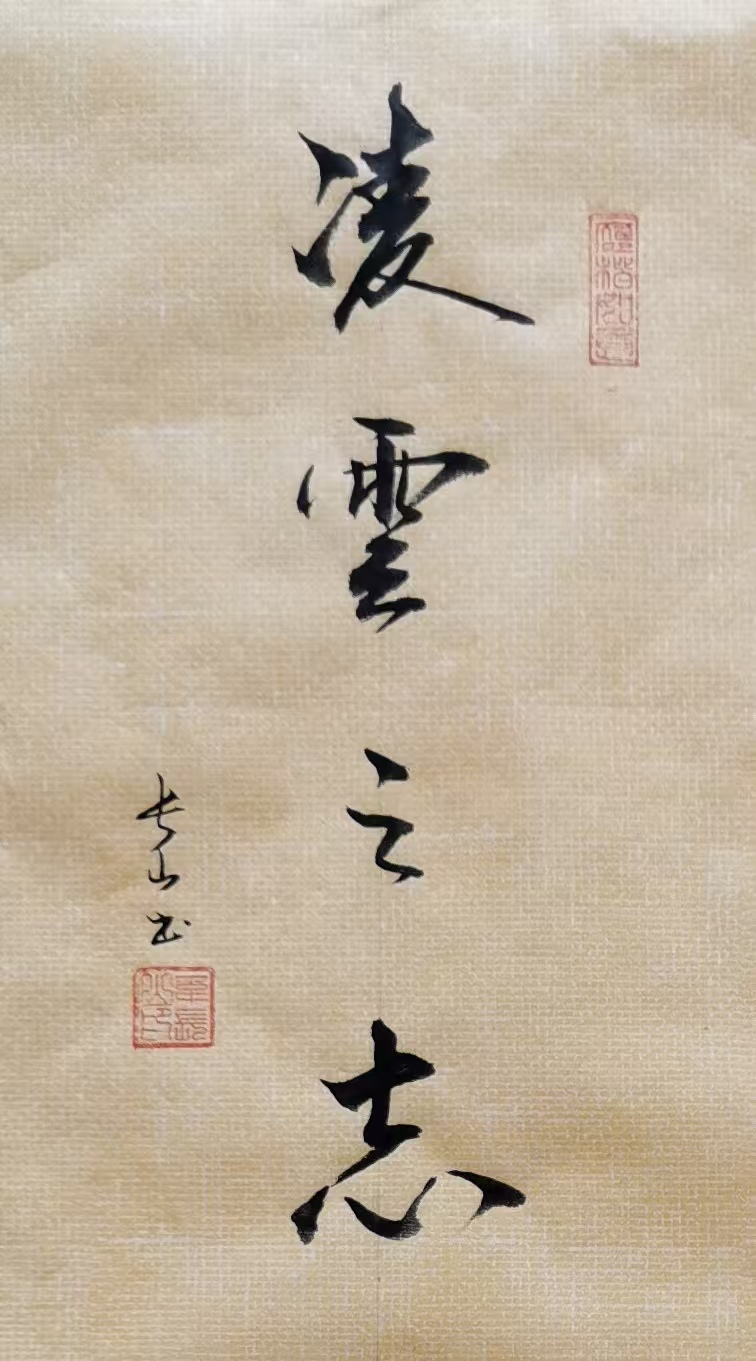 凌雲之志
長山书